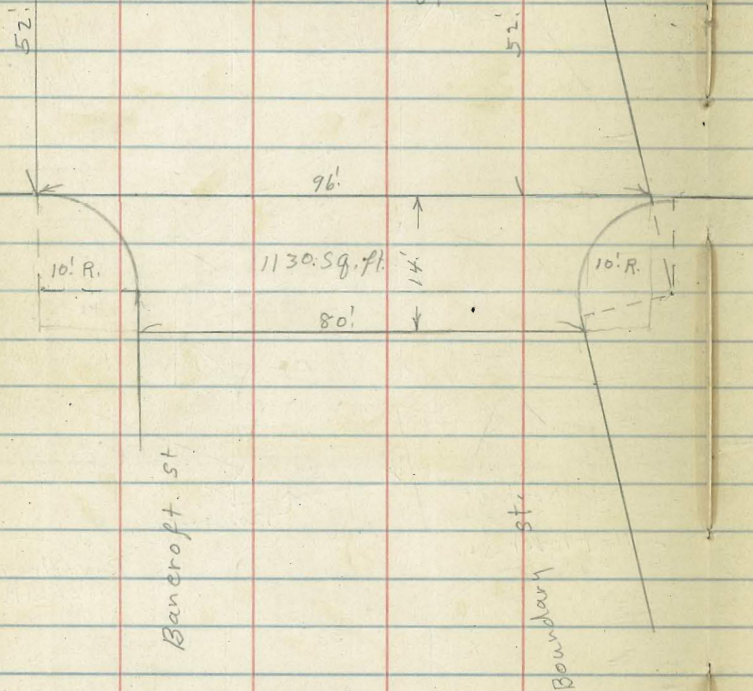 52'
52'
96'
10' R.
1130. Sq. ft.
14'
10' R.
80'
Bancroft. st
Boundary st.